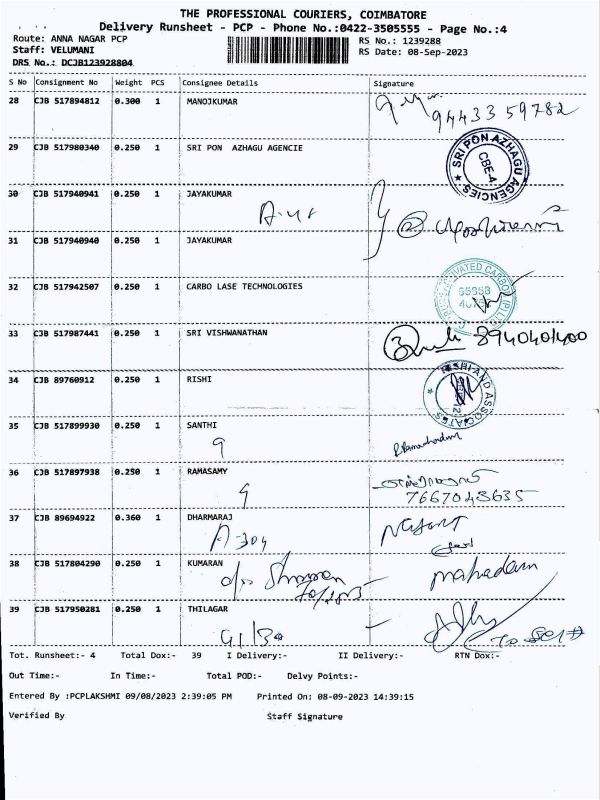 THE PROFESSIONAL COURIERS, COIMBATORE
Delivery Runsheet - PCP - Phone No.:0422-3505555 - Page No.:4
Route: ANNA NAGAR PCP RS No.: 1239288
Staff: VELUMANI RS Date: 08-Sep-2023
DRS No.: DCJB123928804
S No Consignment No Weight PCS Consignee Details Signature
28 CJB 517894812 0.300 1 MANOJKUMAR
9443359782
29 CJB 517980340 0.250 1 SRI PON AZHAGU AGENCIE
SRI PON AZHAGU AGENCIES
CBE-4
30 CJB 517940941 0.250 1 JAYAKUMAR
31 CJB 517940940 0.250 1 JAYAKUMAR
32 CJB 517942507 0.250 1 CARBO LASE TECHNOLOGIES
33 CJB 517987441 0.250 1 SRI VISHWANATHAN
8940401400
34 CJB 89760912 0.250 1 RISHI
RISHI AND ASSOCIATES
35 CJB 517899930 0.250 1 SANTHI
9
36 CJB 517897938 0.250 1 RAMASAMY
9
7667043635
37 CJB 89694922 0.360 1 DHARMARAJ
A 304
38 CJB 517804290 0.250 1 KUMARAN
mahadam
39 CJB 517950281 0.250 1 THILAGAR
Tot. Runsheet:- 4 Total Dox:- 39 I Delivery:- II Delivery:- RTN Dox:-
Out Time:- In Time:- Total POD:- Delvy Points:-
Entered By :PCPLAKSHMI 09/08/2023 2:39:05 PM Printed On: 08-09-2023 14:39:15
Verified By Staff Signature